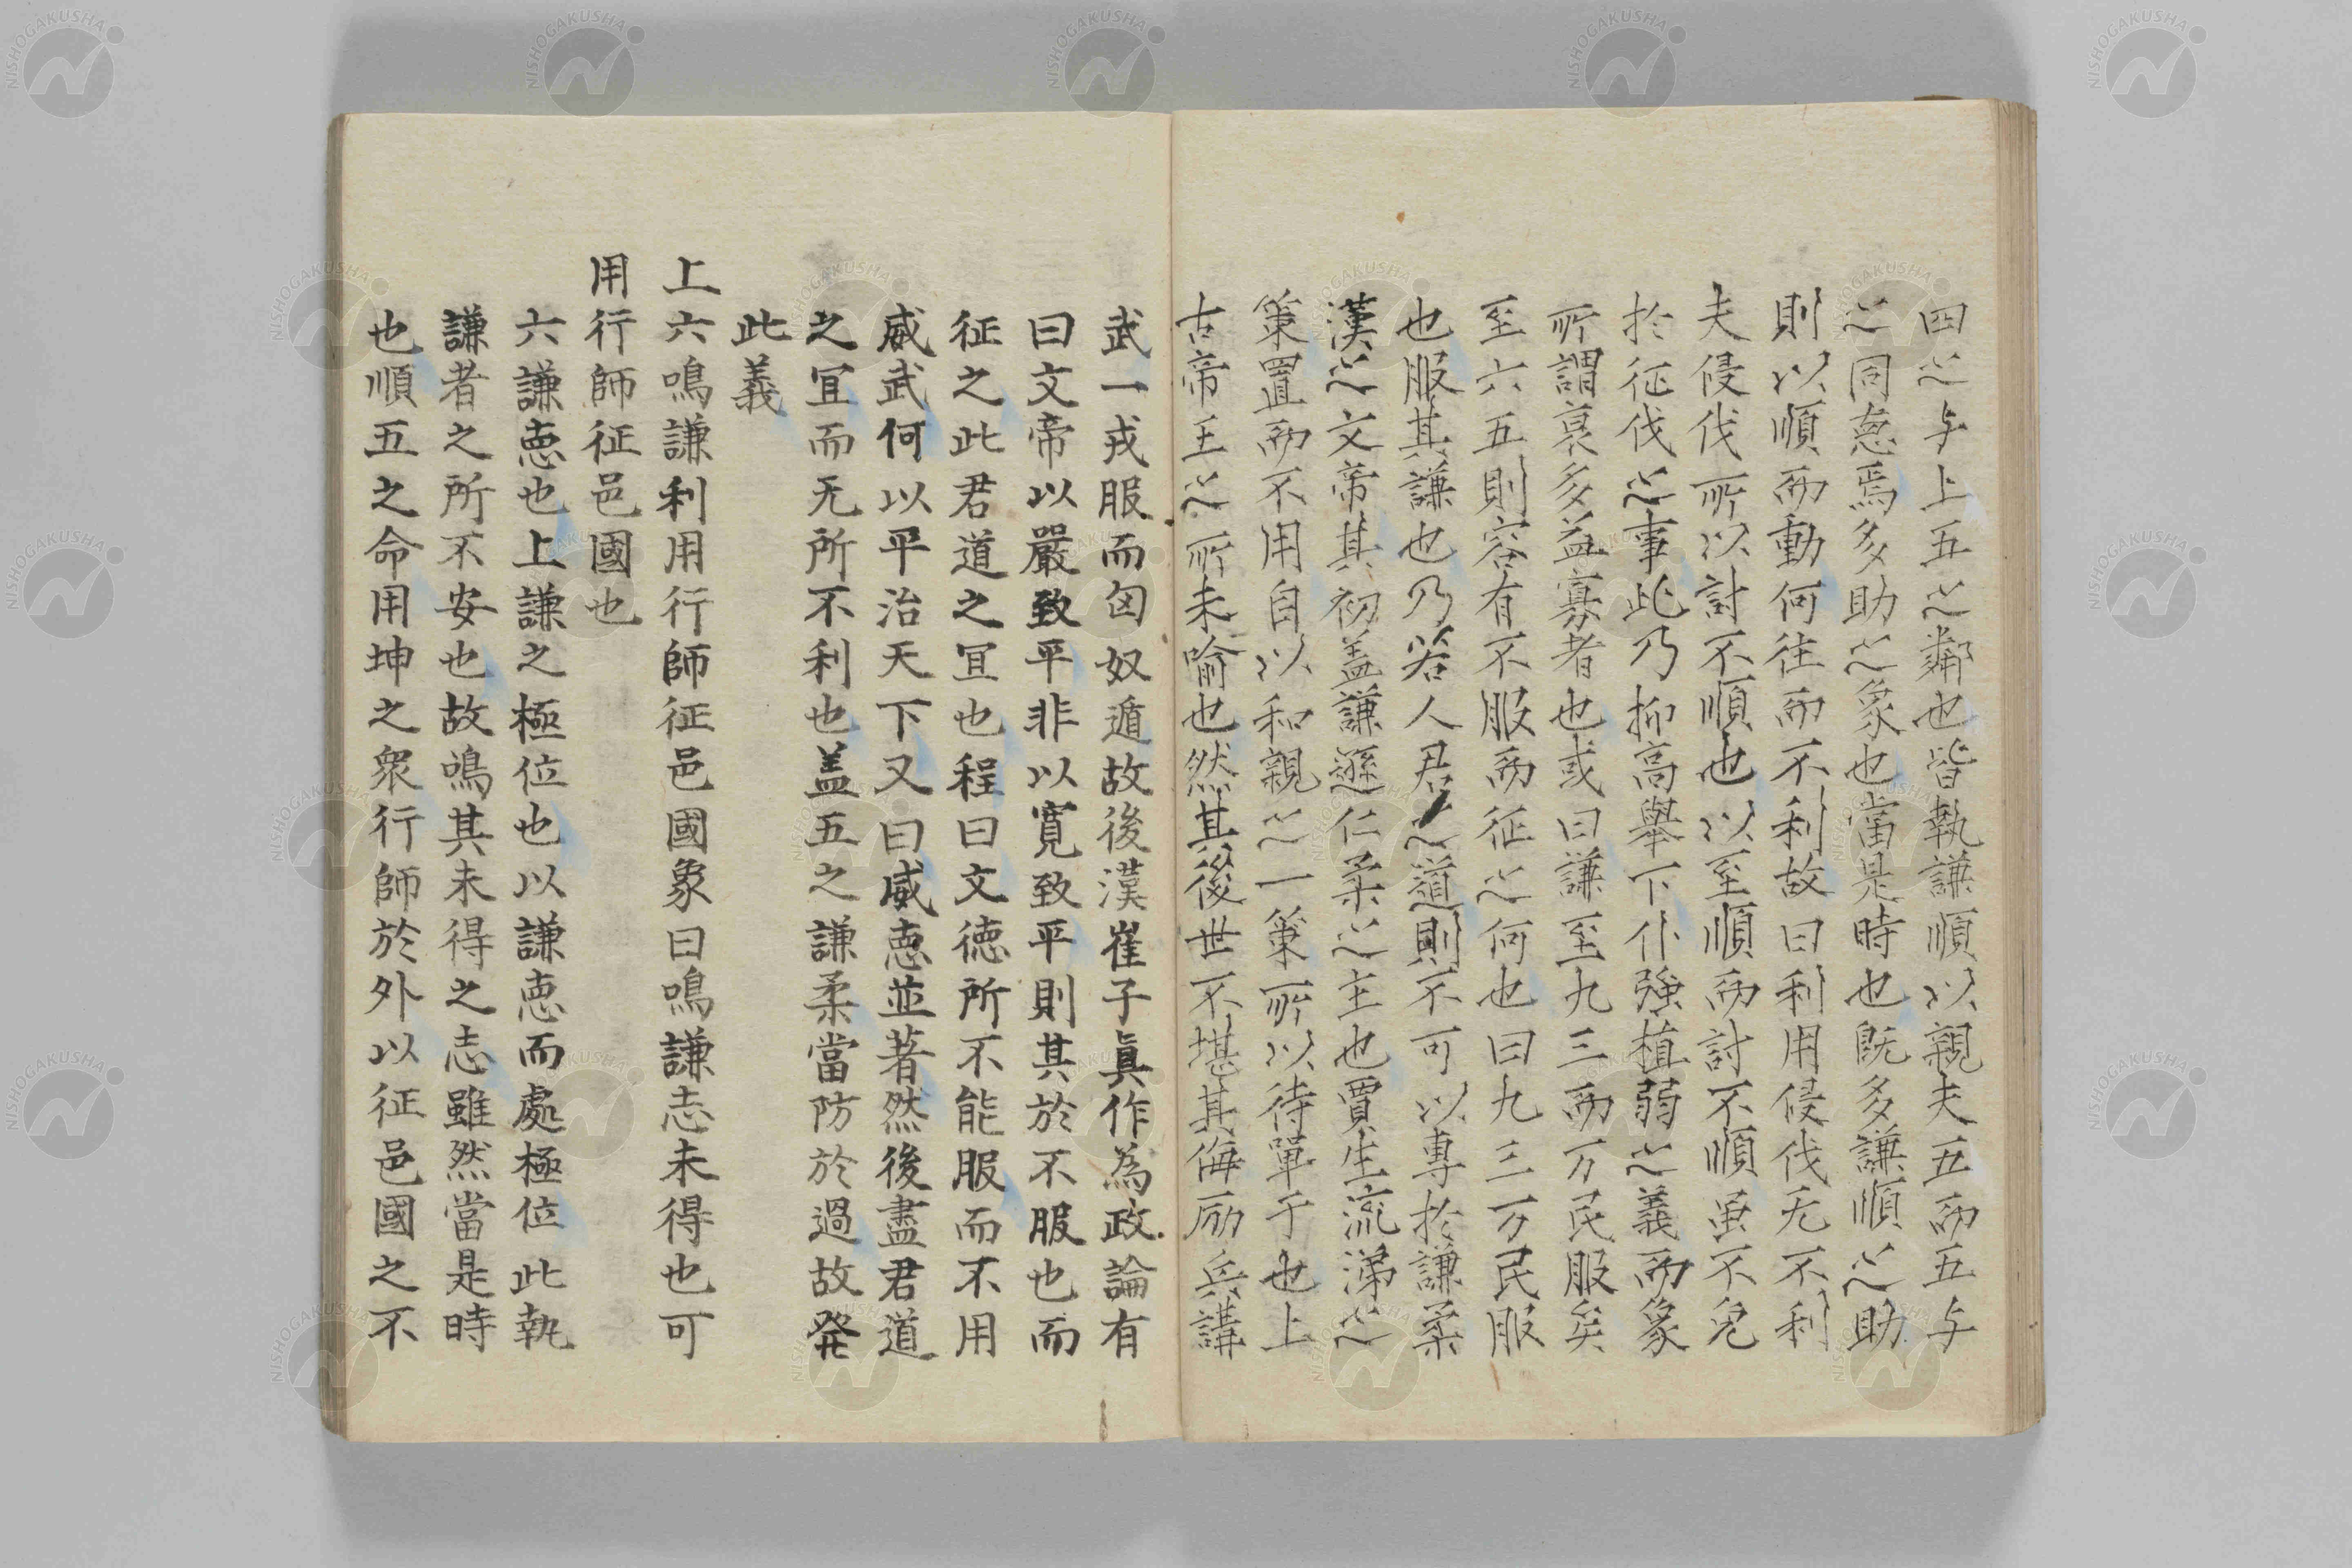 四之与上五之鄰也皆執謙順以親夫五而五与
之同惪焉多助之象也當是時也既多謙順之助
則以順而動何往而不利故曰利用侵伐无不利
夫侵伐所以討不順也以至順而討不順虽不免
於征伐之事此乃抑高舉下仆強植弱之義而象
所謂裒多益寡者也或曰謙至九三而万民服矣
至六五則容有不服而征之何也曰九三万民服
也服其謙也乃若人君之道則不可以專於謙柔
漢之文帝其初盖謙遜仁柔之主也賈生流涕之
策置而不用自以和親之一策所以待單于也上
古帝王之所未喻也然其後世不堪其侮励兵講
武一戎服而匈奴遁故後漢崔子眞作為政論有
曰文帝以嚴致平非以寛致平則其於不服也而
征之此君道之冝也程曰文徳所不能服而不用
威武何以平治天下又曰威惪並著然後盡君道
之冝而无所不利也盖五之謙柔當防於過故発
此義
上六鳴謙利用行師征邑國象曰鳴謙志未得也可
用行師征邑國也
六謙惪也上謙之極位也以謙惪而處極位此執
謙者之所不安也故鳴其未得之志雖然當是時
也順五之命用坤之衆行師於外以征邑國之不
NISHOGAKUSHA